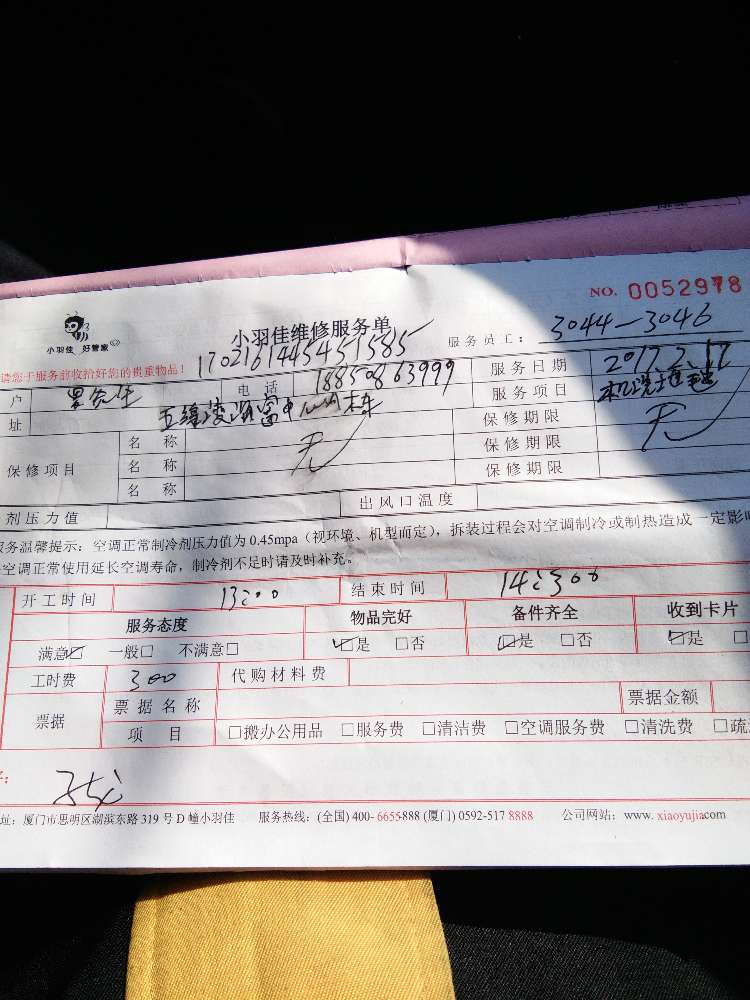 NO. 0052978
小羽佳 好管家
小羽佳维修服务单
服务员工： 3044-3046
请您于服务前收拾好您的贵重物品！ 1702161445451585
户 电话 18850863999 服务日期 2017.2.17
址 服务项目
保修项目 名称 无 保修期限 无
名称 保修期限
名称 保修期限
剂压力值 出风口温度
服务温馨提示：空调正常制冷剂压力值为 0.45mpa（视环境、机型而定），拆装过程会对空调制冷或制热造成一定影
空调正常使用延长空调寿命，制冷剂不足时请及时补充。
开工时间 13:00 结束时间
服务态度 物品完好 备件齐全 收到卡片
满意☑ 一般□ 不满意□ ☑是 □否 ☑是 □否 ☑是
工时费 300 代购材料费
票据 票据名称 票据金额
项目 □搬办公用品 □服务费 □清洁费 □空调服务费 □清洗费 □疏
址：厦门市思明区湖滨东路 319 号 D 幢小羽佳 服务热线：(全国) 400-6655-888 (厦门) 0592-517 8888 公司网站：www. xiaoyujia.com